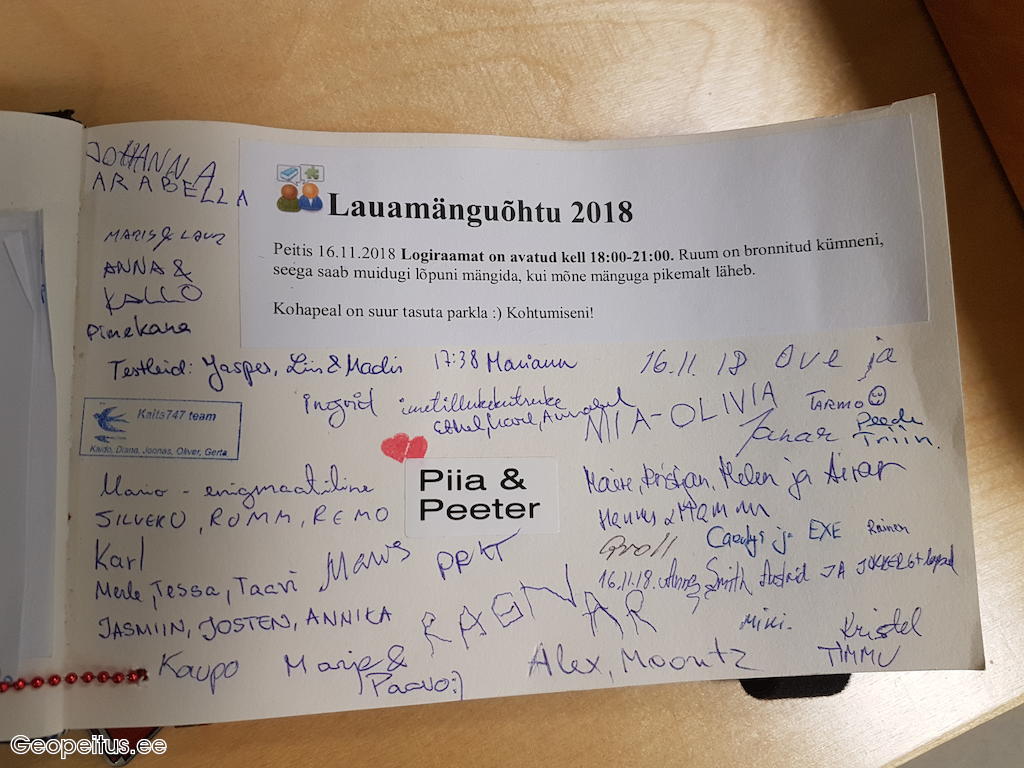 JOHANNA
ARABELLA
Lauamänguõhtu 2018
Peitis 16.11.2018 Logiraamat on avatud kell 18:00-21:00. Ruum on bronnitud kümneni,
seega saab muidugi lõpuni mängida, kui mõne mänguga pikemalt läheb.
Kohapeal on suur tasuta parkla :) Kohtumiseni!
MARIS & LAURI
ANNA &
KALLO
Pimekana
Testleid: Jasper, Liis & Madis
17:38 Mariann
16.11.18 Ove ja
NIA-OLIVIA
Ingrid
imetillukekutruke
TARMO
Janar
Triin.
Kaits747 team
Kaido, Diana, Joonas, Oliver, Gerta
Piia &
Peeter
Mario - enigmaatiline
SILVERO, ROMM, REMO
Karl
Merle, Tessa, Taavi
JASMIIN, JOSTEN, ANNIKA
Kaupo
Marje &
Paavo:)
PPKT
RAGNAR
Alex, Moontz
Maire, Kristjan, Helen ja Aivar
Groll
ja EXE
Rainer
16.11.18.
Smith
Astrid JA
Miki.
Kristel
TIMMU
Geopeitus.ee